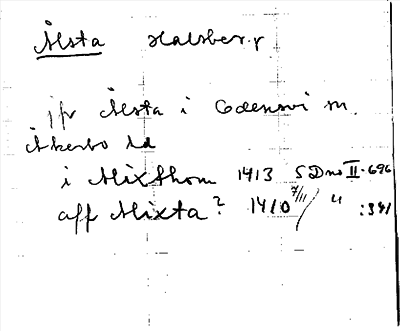 Åsta Halsberg
jfr Älsta i Odensvi sn.
Åkerbo hd
i Alixthom 1413 SDns II.696
aff Alixta? 1410 7/11 " :341